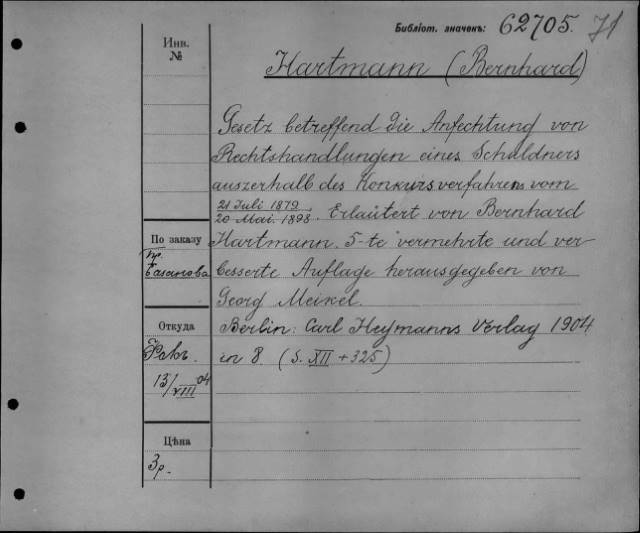 Библіот. значекъ: 62705. 71
Инв.
№
Hartmann (Bernhard)
Gesetz betreffend die Anfechtung von
Rechtshandlungen eines Schuldners
auszerhalb des Konkursverfahrens vom
21 Juli 1879
20 Mai. 1898. Erläutert von Bernhard
По заказу
Hartmann. 5-te vermehrte und ver-
пр.
Базанова
besserte Auflage herausgegeben von
Georg Meikel.
Откуда
Berlin: Carl Heymanns Verlag 1904
in 8. (S. XII + 325)
13/VIII 04
Цѣна
3р.